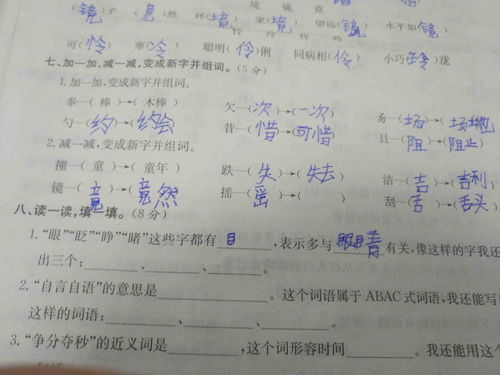 境 镜 竟
(镜)子 (竟)然 环(境) 家(境) 望远(镜) 水平如(镜)
怜 伶 怜 伶 玲
可(怜) 寒(冷) 聪明(伶)俐 同病相(伶) 小巧(玲)珑
七、加一加,减一减,变成新字并组词。(5分)
1.加一加,变成新字并组词。
奉—(棒)→(木棒) 欠—(次)→(一次) 昜—(场)→(场地)
勺—(约)→(约会) 昔—(惜)→(可惜) 且—(阻)→(阻止)
2.减一减,变成新字并组词。
撞—(童)→(童年) 跌—(失)→(失去) 洁—(吉)→(吉利)
镜—(竟)→(竟然) 摇—(䍃)→( ) 刮—(舌)→(舌头)
八、读一读,填一填。(8分)
1.“眼”“眨”“睁”“睹”这些字都有 目 ,表示多与 眼睛 有关,像这样的字我还
出三个:______、______、______。
2.“自言自语”的意思是______。这个词语属于ABAC式词语,我还能写
这样的词语:______、______、______。
3.“争分夺秒”的近义词是______,这个词形容时间______。我还能用这个